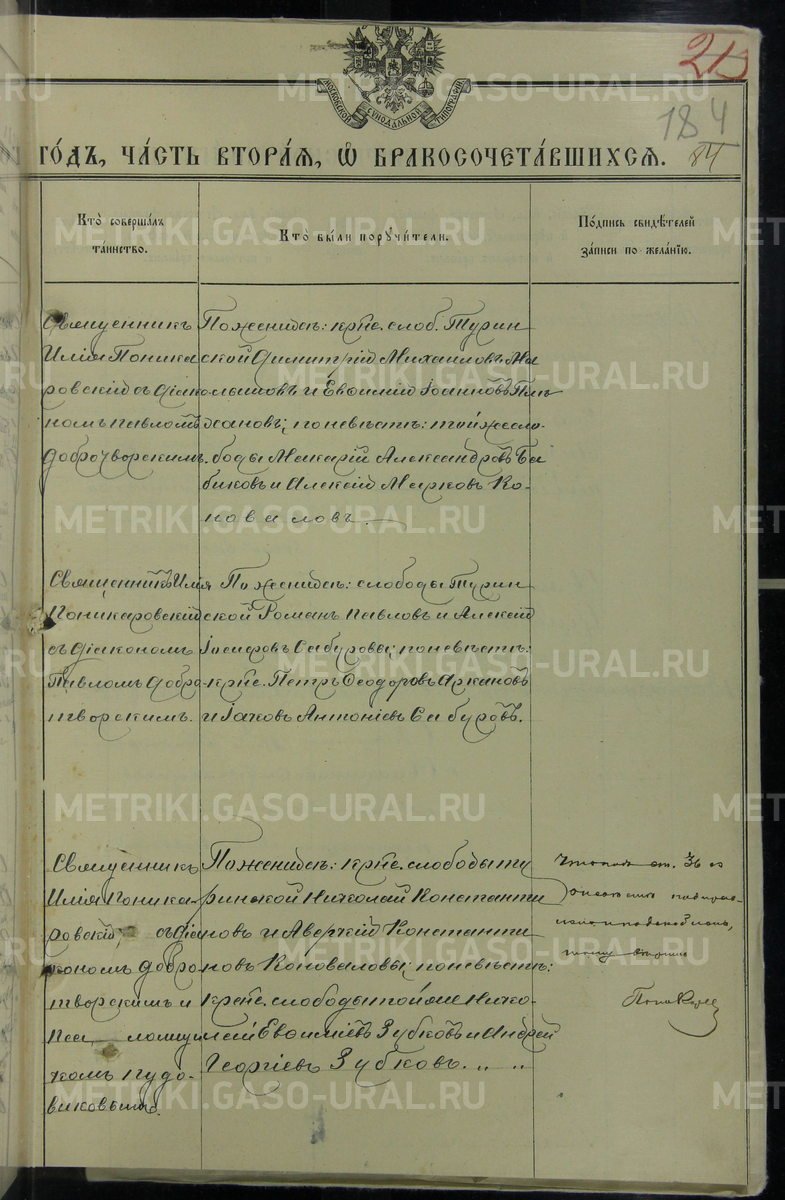 МОСКОВСКОЙ СѴНОДАЛЬНОЙ ТИПОГРАФІИ
213
184
ГО́ДЪ, ЧА́СТЬ ВТОРА́Ѧ, Ѡ҆ БРАКОСОЧЕТА́ВШИХСѦ.
84
Кто̀ соверша́лъ
та́инство.
Кто̀ бы́ли порꙋчи́тели.
По́дпись свидѣ́телей
за́писи по жела́нїю.
Священникъ
Илія Поника
ровскій съ діако
номъ Павломъ
Доброчворскимъ.
По женихѣ: крѣс. слоб. Турин
ской Димитрій Михаиловъ Ма
и Евѳимій Іоанновъ
по невѣстѣ: той же сло-
боды Макарій Александровъ Ба
биковъ и Алексій Марковъ Ко-
новаловъ.
Священникъ Илія
Поникаровскій
съ діакономъ
Павломъ Добро-
творскимъ.
По женихѣ: слободы Турин
ской Романъ Павловъ и Алексій
Іосифовъ Сабуровы; по невѣстѣ:
крѣс. Петръ Ѳеодоровъ Аркановъ
и Іаковъ Антоніевъ Сабуровъ.
Священникъ
Илія Поника-
ровскій, съ діа
кономъ Добро
творскимъ и
Пса ломщи
комъ Пудо-
виковымъ.
По женихѣ: крѣс. слободы Ту
ринской Николай Константи
новъ и Аверкій Константи
новъ Коноваловы; по невѣстѣ:
крѣс. слободы той же Нико-
лай Евѳиміевъ Зубковъ и Андрей
Георгіевъ Зубковъ.
ст. 36